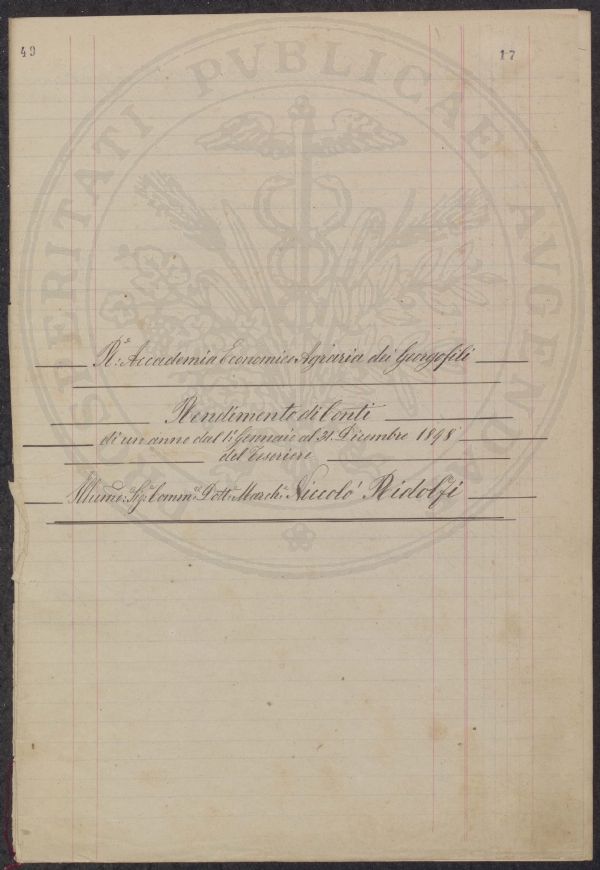 49
17
PROSPERITATI PVBLICAE AVGENDAE
R.ª Accademia Economico Agraria dei Georgofili
Rendimento di Conti
di un anno dal 1.° Gennaio al 31. Dicembre 1898
del Tesoriere
Illumo: Sig.r Comm.e Dott.e March.e Niccolò Ridolfi